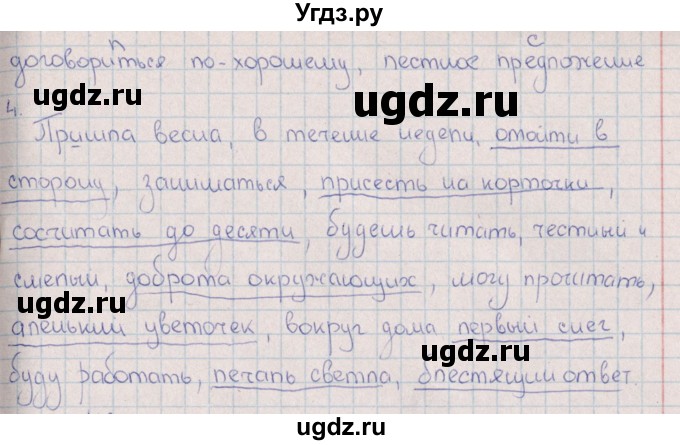 Угдз.ру
п с
договориться по-хорошему, лестное предложение
ugdz.ru ugdz.ru
4.
Пришла весна, в течение недели, отойти в
ugdz.ru
сторону, заниматься, присесть на корточки,
ugdz.ru
сосчитать до десяти, будешь читать, честный и
смелый, доброта окружающих, могу прочитать,
ugdz.ru
аленький цветочек, вокруг дома первый снег,
ugdz.ru
буду работать, печаль светла, блестящий ответ.
ugdz.ru